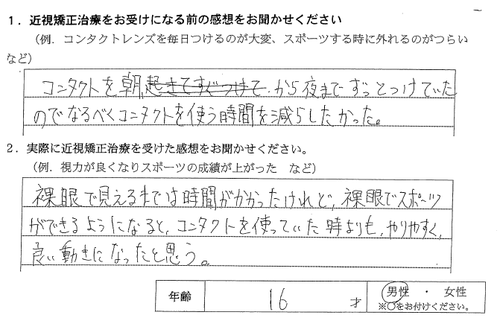 1．近視矯正治療をお受けになる前の感想をお聞かせください
（例．コンタクトレンズを毎日つけるのが大変、スポーツする時に外れるのがつらい
など）
コンタクトを朝起きてすぐつけて、から夜までずっとつけていた
のでなるべくコンタクトを使う時間を減らしたかった。
2．実際に近視矯正治療を受けた感想をお聞かせください。
（例．視力が良くなりスポーツの成績が上がった　など）
裸眼で見えるまでは時間がかかったけれど、裸眼でスポーツ
ができるようになると、コンタクトを使っていた時よりも、やりやすく、
良い動きになったと思う。
年齢 16 才 男性 ・ 女性
※○をお付けください。